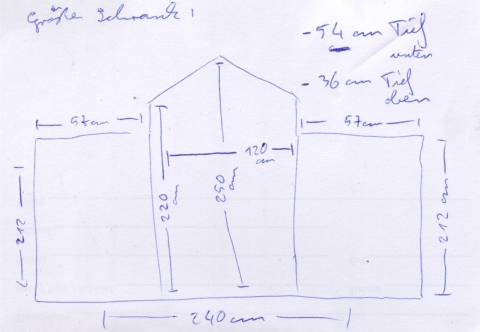 Größe Schrank 1
- 54 cm Tief
unten
- 36 cm Tief
oben
57cm
57cm
120
cm
220
cm
250
cm
212
212 cm
240cm